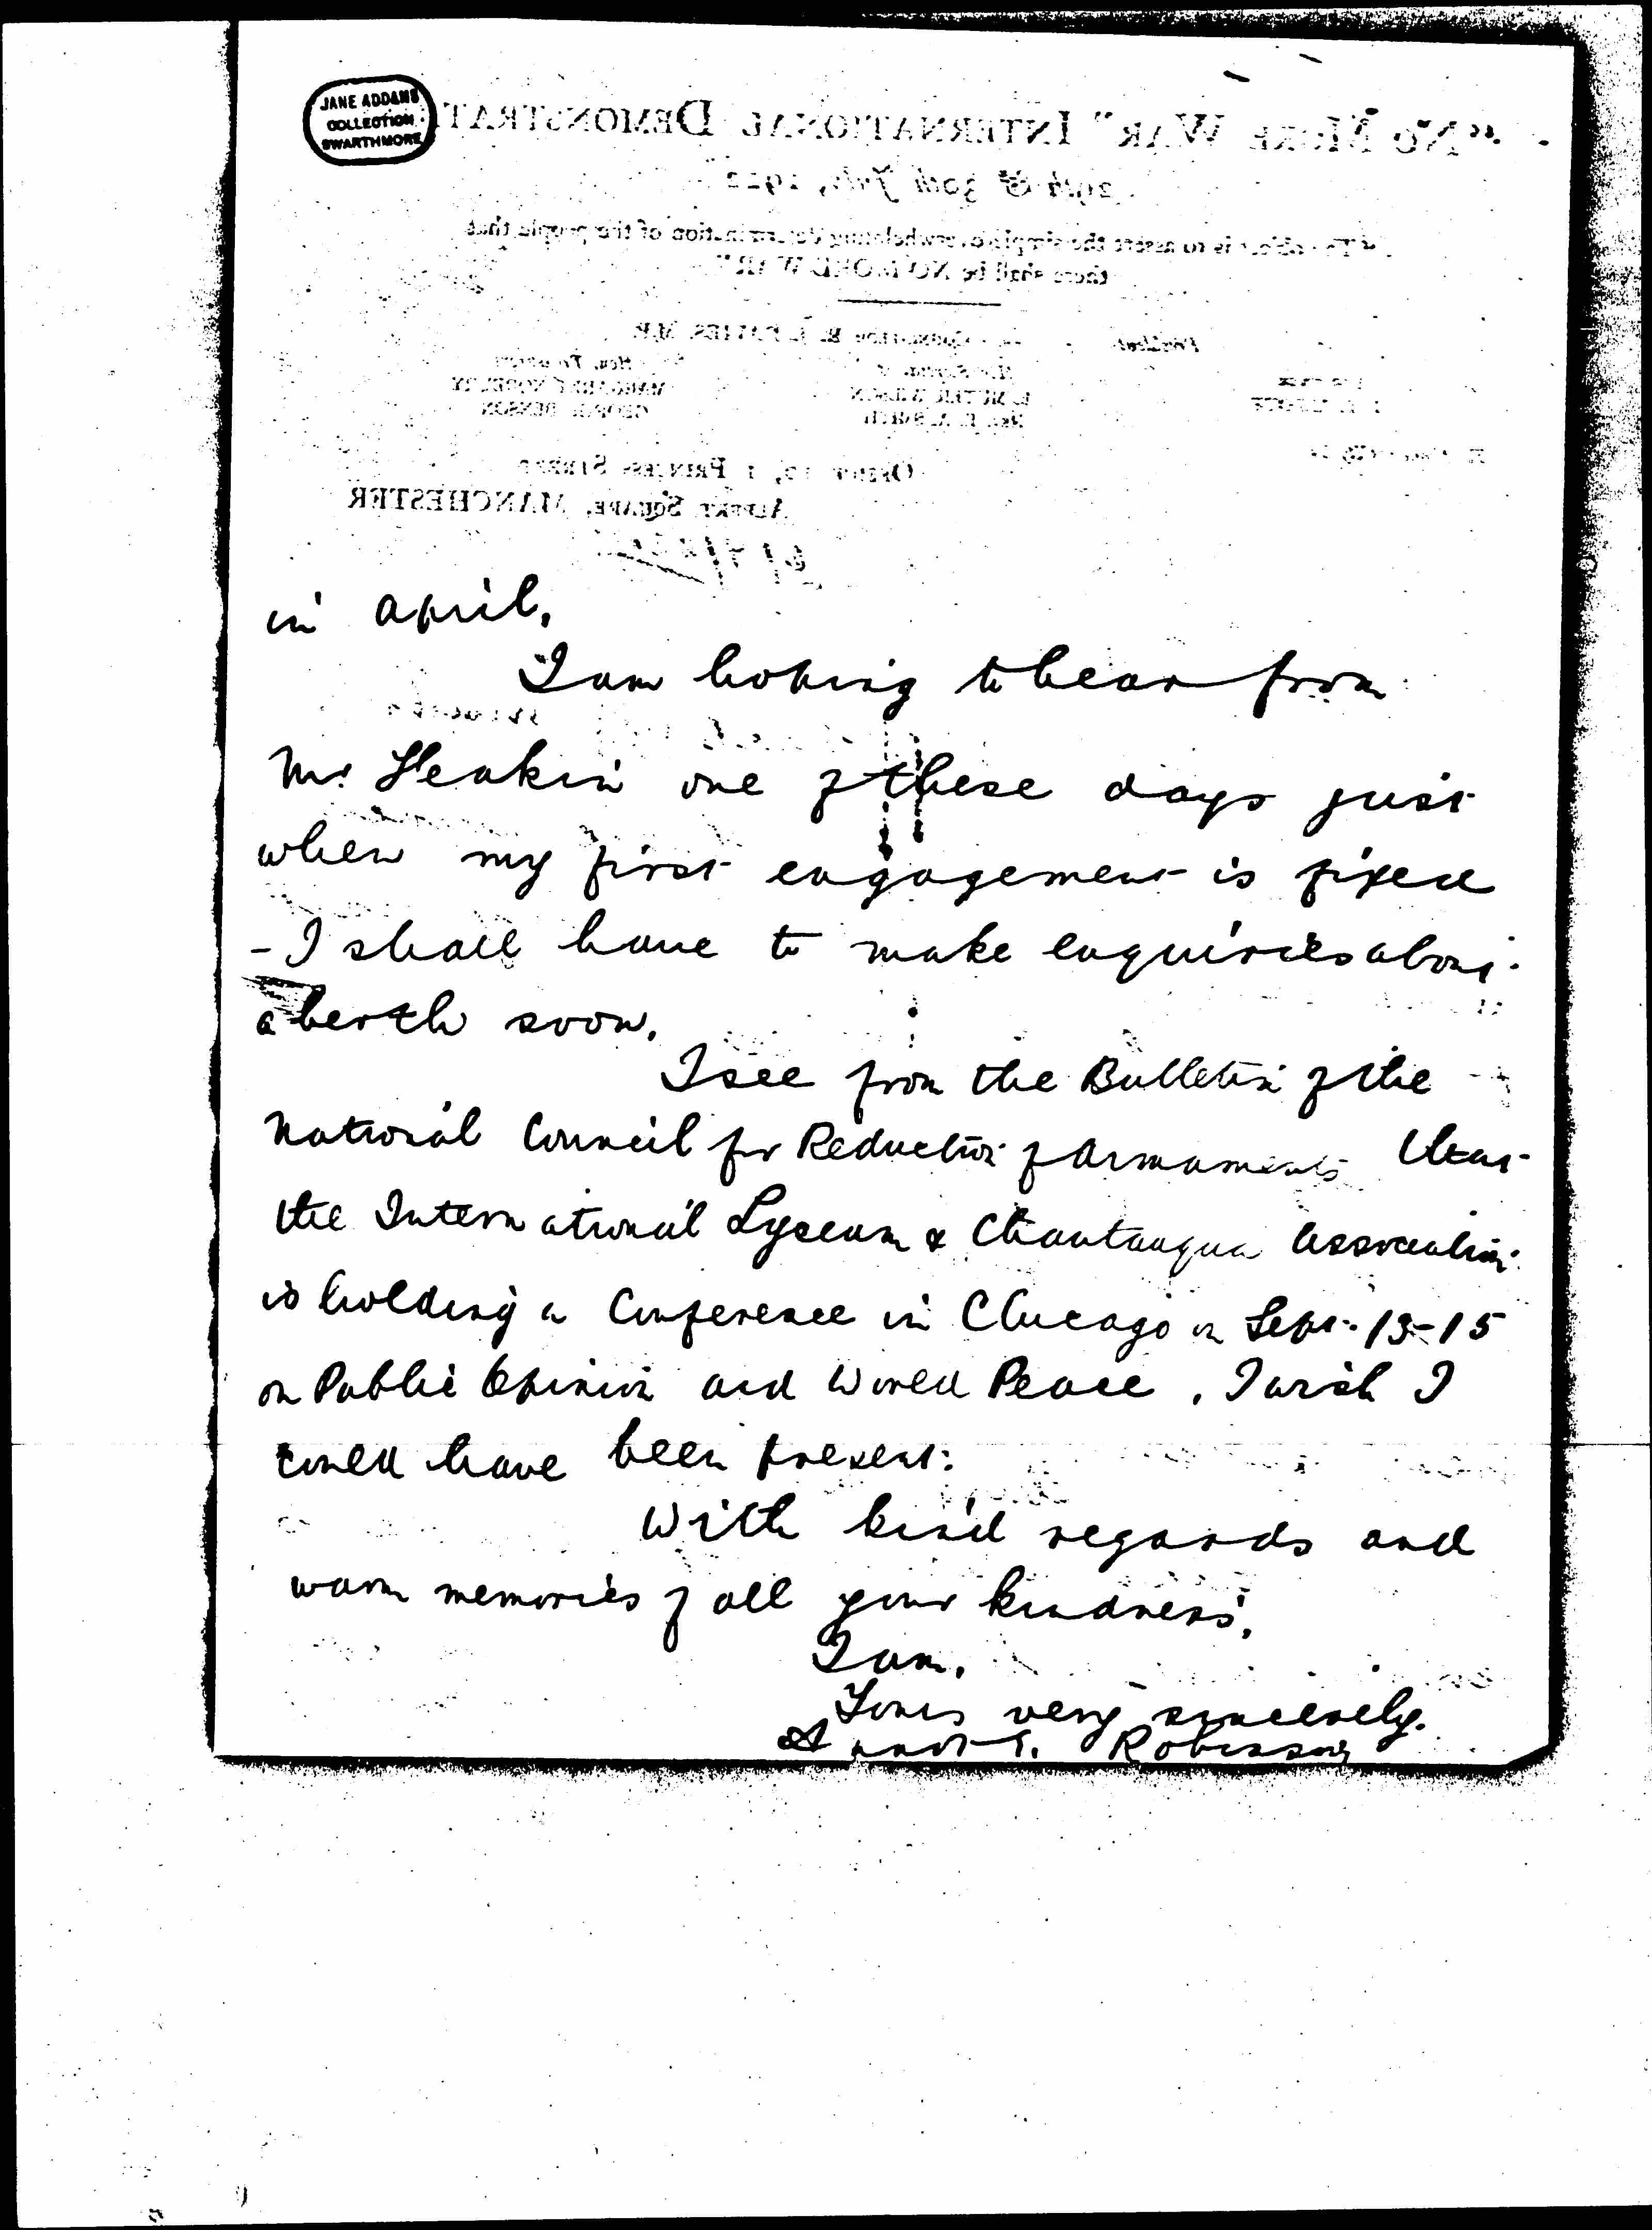 JANE ADDAMS
COLLECTION
SWARTHMORE
"NO MORE WAR" INTERNATIONAL DEMONSTRAT
29th & 30th July, 1922
"The object is to assert the simple overwhelming determination of the people that
there shall be NO MORE WAR"
ALBERT SQUARE, MANCHESTER
in April.
I am hoping to hear from
Mr. Feakin one of these days just
when my first engagement is fixed
- I shall have to make enquiries about
a berth soon.
I see from the Bulletin of the
National Council for Reduction of Armaments that
the International Lyceum & Chautauqua Association
is holding a Conference in Chicago on Sept. 13-15
on Public Opinion and World Peace. I wish I
could have been present.
With kind regards and
warm memories of all your kindness,
I am,
Yours very sincerely.
Robinson